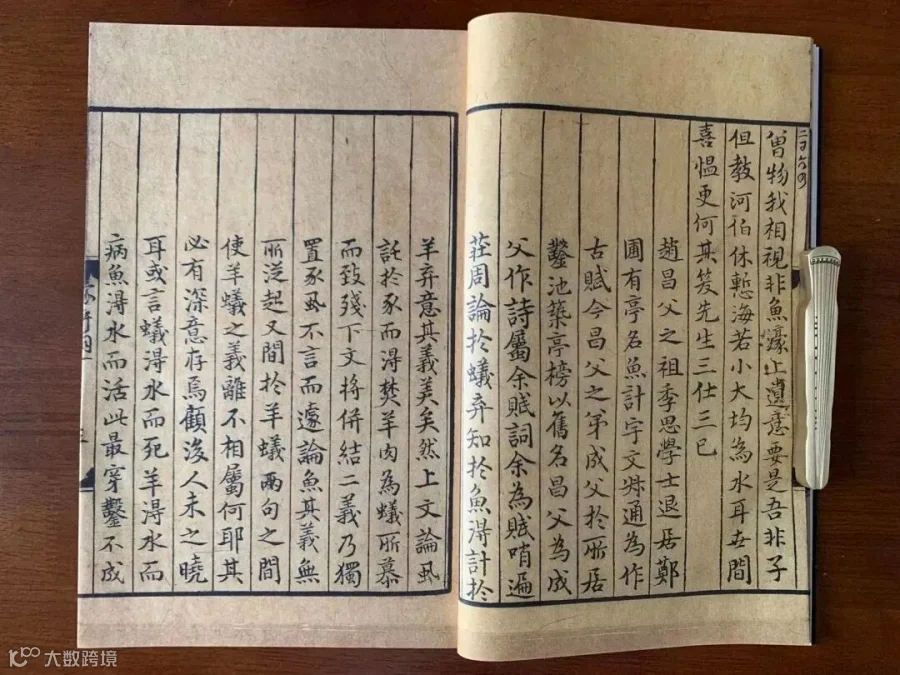 曾物我相視非魚濠上遺意要是吾非子
但教河伯休慙海若小大均為水耳世間
喜愠更何其笑先生三仕三已
趙昌父之祖季思學士退居鄭
圃有亭名魚計宇文叔通為作
古賦今昌父之弟成父於所居
鑿池築亭榜以舊名昌父為成
父作詩屬余賦詞余為賦哨遍
莊周論於蟻弃知於魚得計於
羊弃意其義美矣然上文論虱
託於豕而得焚羊肉為蟻所慕
而致殘下文將併結二義乃獨
置豕虱不言而遽論魚其義無
所從起又間於羊蟻兩句之間
使羊蟻之義離不相屬何耶其
必有深意存焉顧後人未之曉
耳或言蟻得水而死羊得水而
病魚得水而活此最穿鑿不成
大数跨境